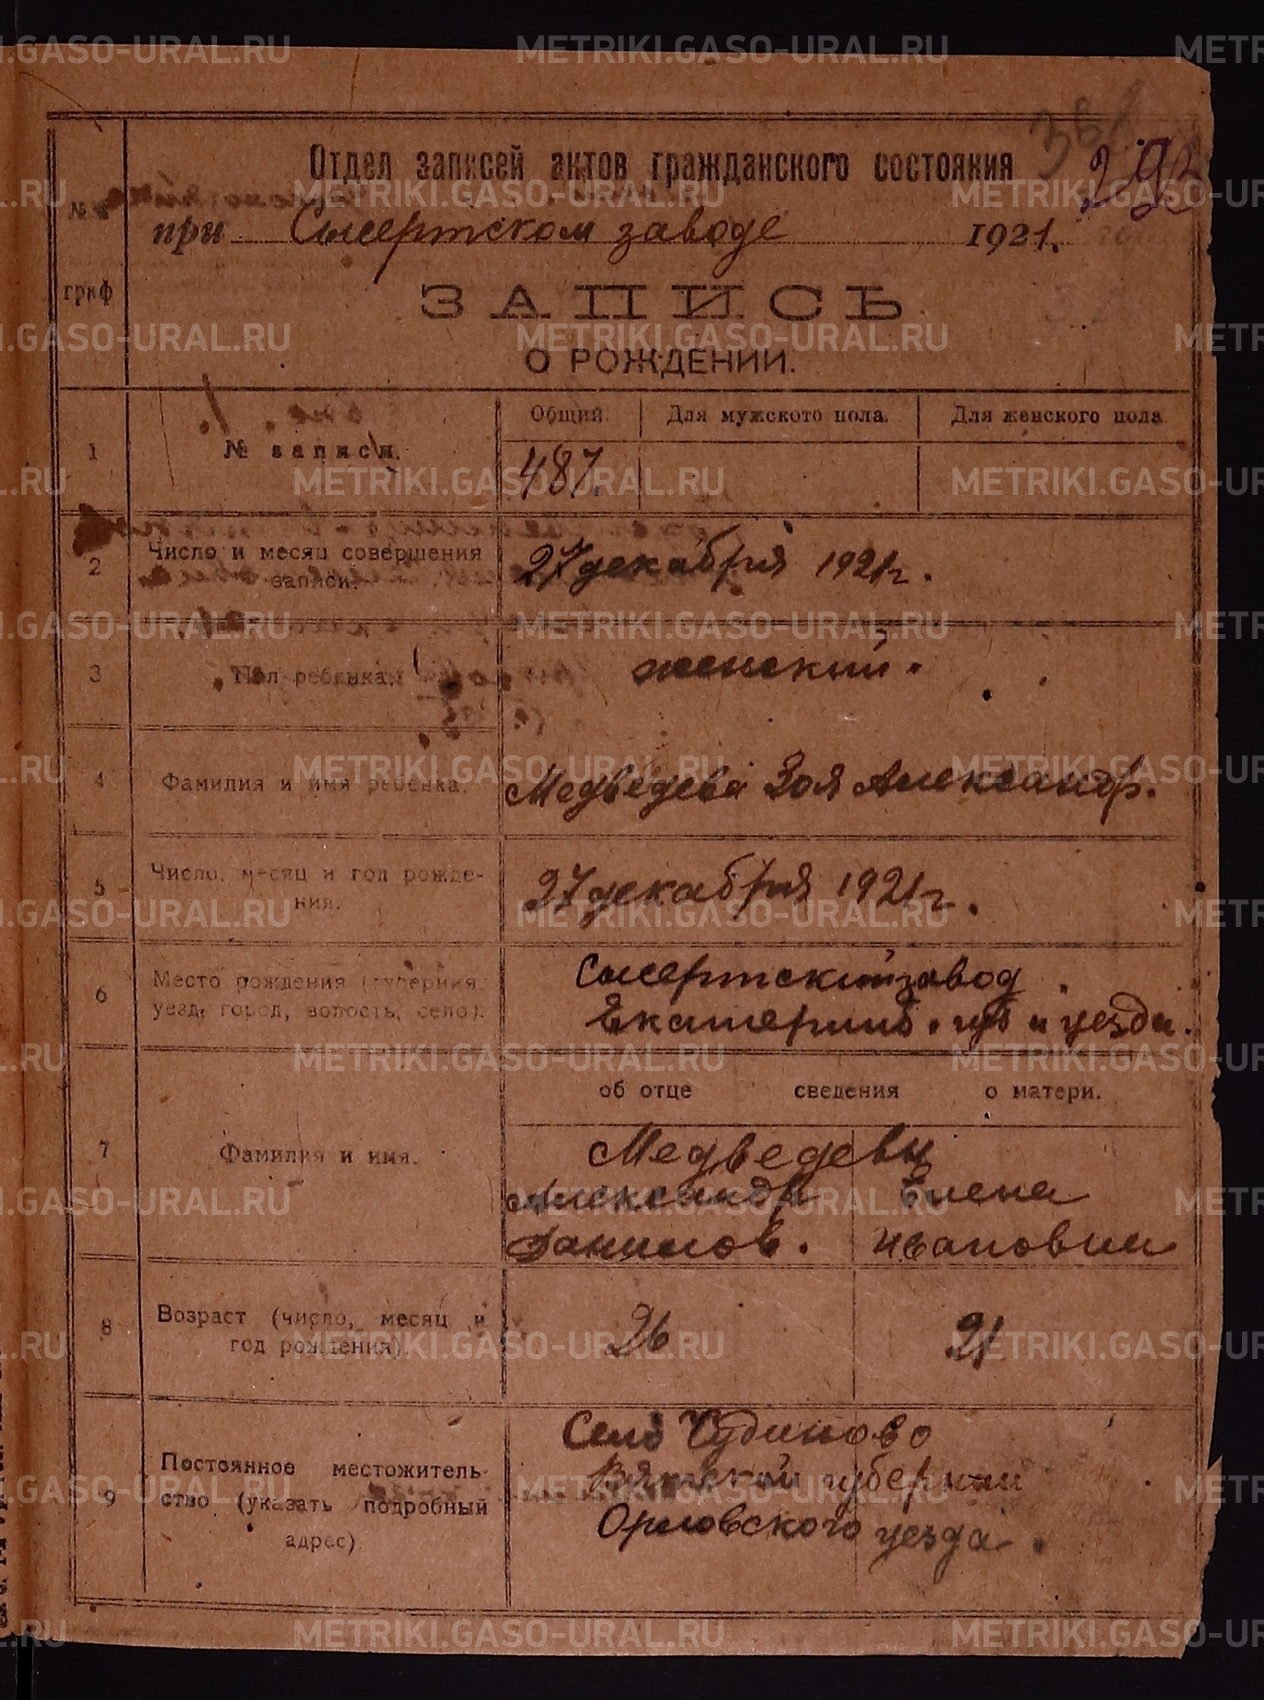 METRIKI.GASO-URAL.RU
292
№№ граф
Отдел записей актов гражданского состояния
при Сысертском заводе 1921.
ЗАПИСЬ
О РОЖДЕНИИ.
1 № записи. Общий. Для мужского пола. Для женского пола
487.
2 Число и месяц совершения записи. 27 декабря 1921 г.
3 Пол ребенка. женский.
4 Фамилия и имя ребенка. Медведева Зоя Александр.
5 Число, месяц и год рожде-
ния. 27 декабря 1921 г.
6 Место рождения (губерния, Сысертский завод
уезд, город, волость, село). Екатеринб. губ и уезда.
об отце сведения о матери.
7 Фамилия и имя. Медведевы
Александр Елена
Данилов. Ивановна
8 Возраст (число, месяц и
год рождения). 26 21
9 Постоянное местожитель-
ство (указать подробный
адрес)
Село Чудиново
Вятской губернии
Орловского уезда.